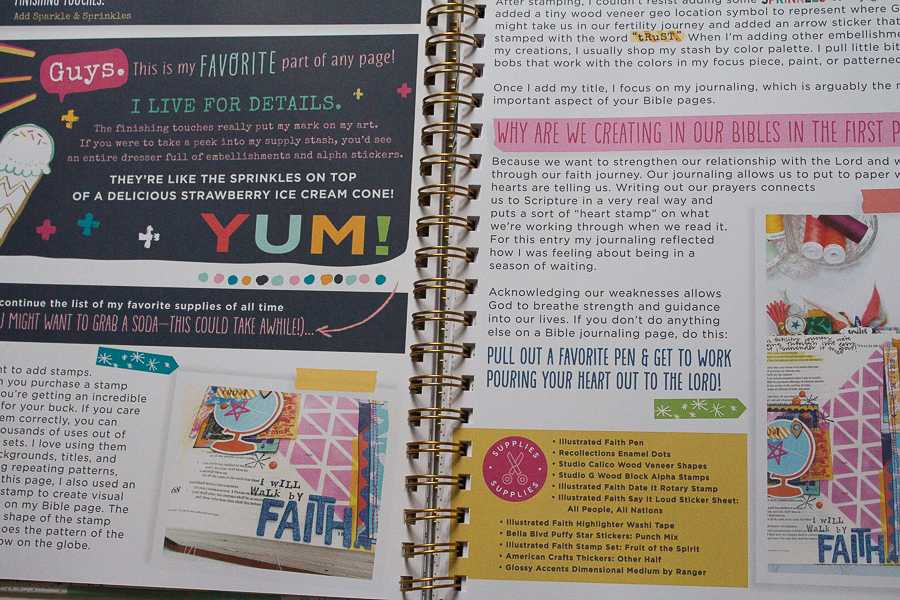 FINISHING TOUCHES:
Add Sparkle & Sprinkles
Guys. This is my FAVORITE part of any page!
I LIVE FOR DETAILS.
The finishing touches really put my mark on my art.
If you were to take a peek into my supply stash, you'd see
an entire dresser full of embellishments and alpha stickers.
THEY'RE LIKE THE SPRINKLES ON TOP
OF A DELICIOUS STRAWBERRY ICE CREAM CONE!
YUM!
continue the list of my favorite supplies of all time
U MIGHT WANT TO GRAB A SODA—THIS COULD TAKE AWHILE!)...
nt to add stamps.
you purchase a stamp
you're getting an incredible
for your buck. If you care
em correctly, you can
ousands of uses out of
sets. I love using them
ckgrounds, titles, and
g repeating patterns,
this page, I also used an
stamp to create visual
on my Bible page. The
shape of the stamp
oes the pattern of the
ow on the globe.
68
i WiLL
WaLK by
FAITH
After stamping, I couldn't resist adding some SPRINKLES
added a tiny wood veneer geo location symbol to represent where G
might take us in our fertility journey and added an arrow sticker that
stamped with the word "tRuST." When I'm adding other embellishme
my creations, I usually shop my stash by color palette. I pull little bit
bobs that work with the colors in my focus piece, paint, or patterned
Once I add my title, I focus on my journaling, which is arguably the
important aspect of your Bible pages.
WHY ARE WE CREATING IN OUR BIBLES IN THE FIRST P
Because we want to strengthen our relationship with the Lord and w
through our faith journey. Our journaling allows us to put to paper w
hearts are telling us. Writing out our prayers connects
us to Scripture in a very real way and
puts a sort of "heart stamp" on what
we're working through when we read it.
For this entry my journaling reflected
how I was feeling about being in a
season of waiting.
Acknowledging our weaknesses allows
God to breathe strength and guidance
into our lives. If you don't do anything
else on a Bible journaling page, do this:
PULL OUT A FAVORITE PEN & GET TO WORK
POURING YOUR HEART OUT TO THE LORD!
SUPPLIES
SUPPLIES
• Illustrated Faith Pen
• Recollections Enamel Dots
• Studio Calico Wood Veneer Shapes
• Studio G Wood Block Alpha Stamps
• Illustrated Faith Date It Rotary Stamp
• Illustrated Faith Say It Loud Sticker Sheet:
All People, All Nations
• Illustrated Faith Highlighter Washi Tape
• Bella Blvd Puffy Star Stickers: Punch Mix
• Illustrated Faith Stamp Set: Fruit of the Spirit
• American Crafts Thickers: Other Half
• Glossy Accents Dimensional Medium by Ranger
i WiLL
WaLK by
FAITH